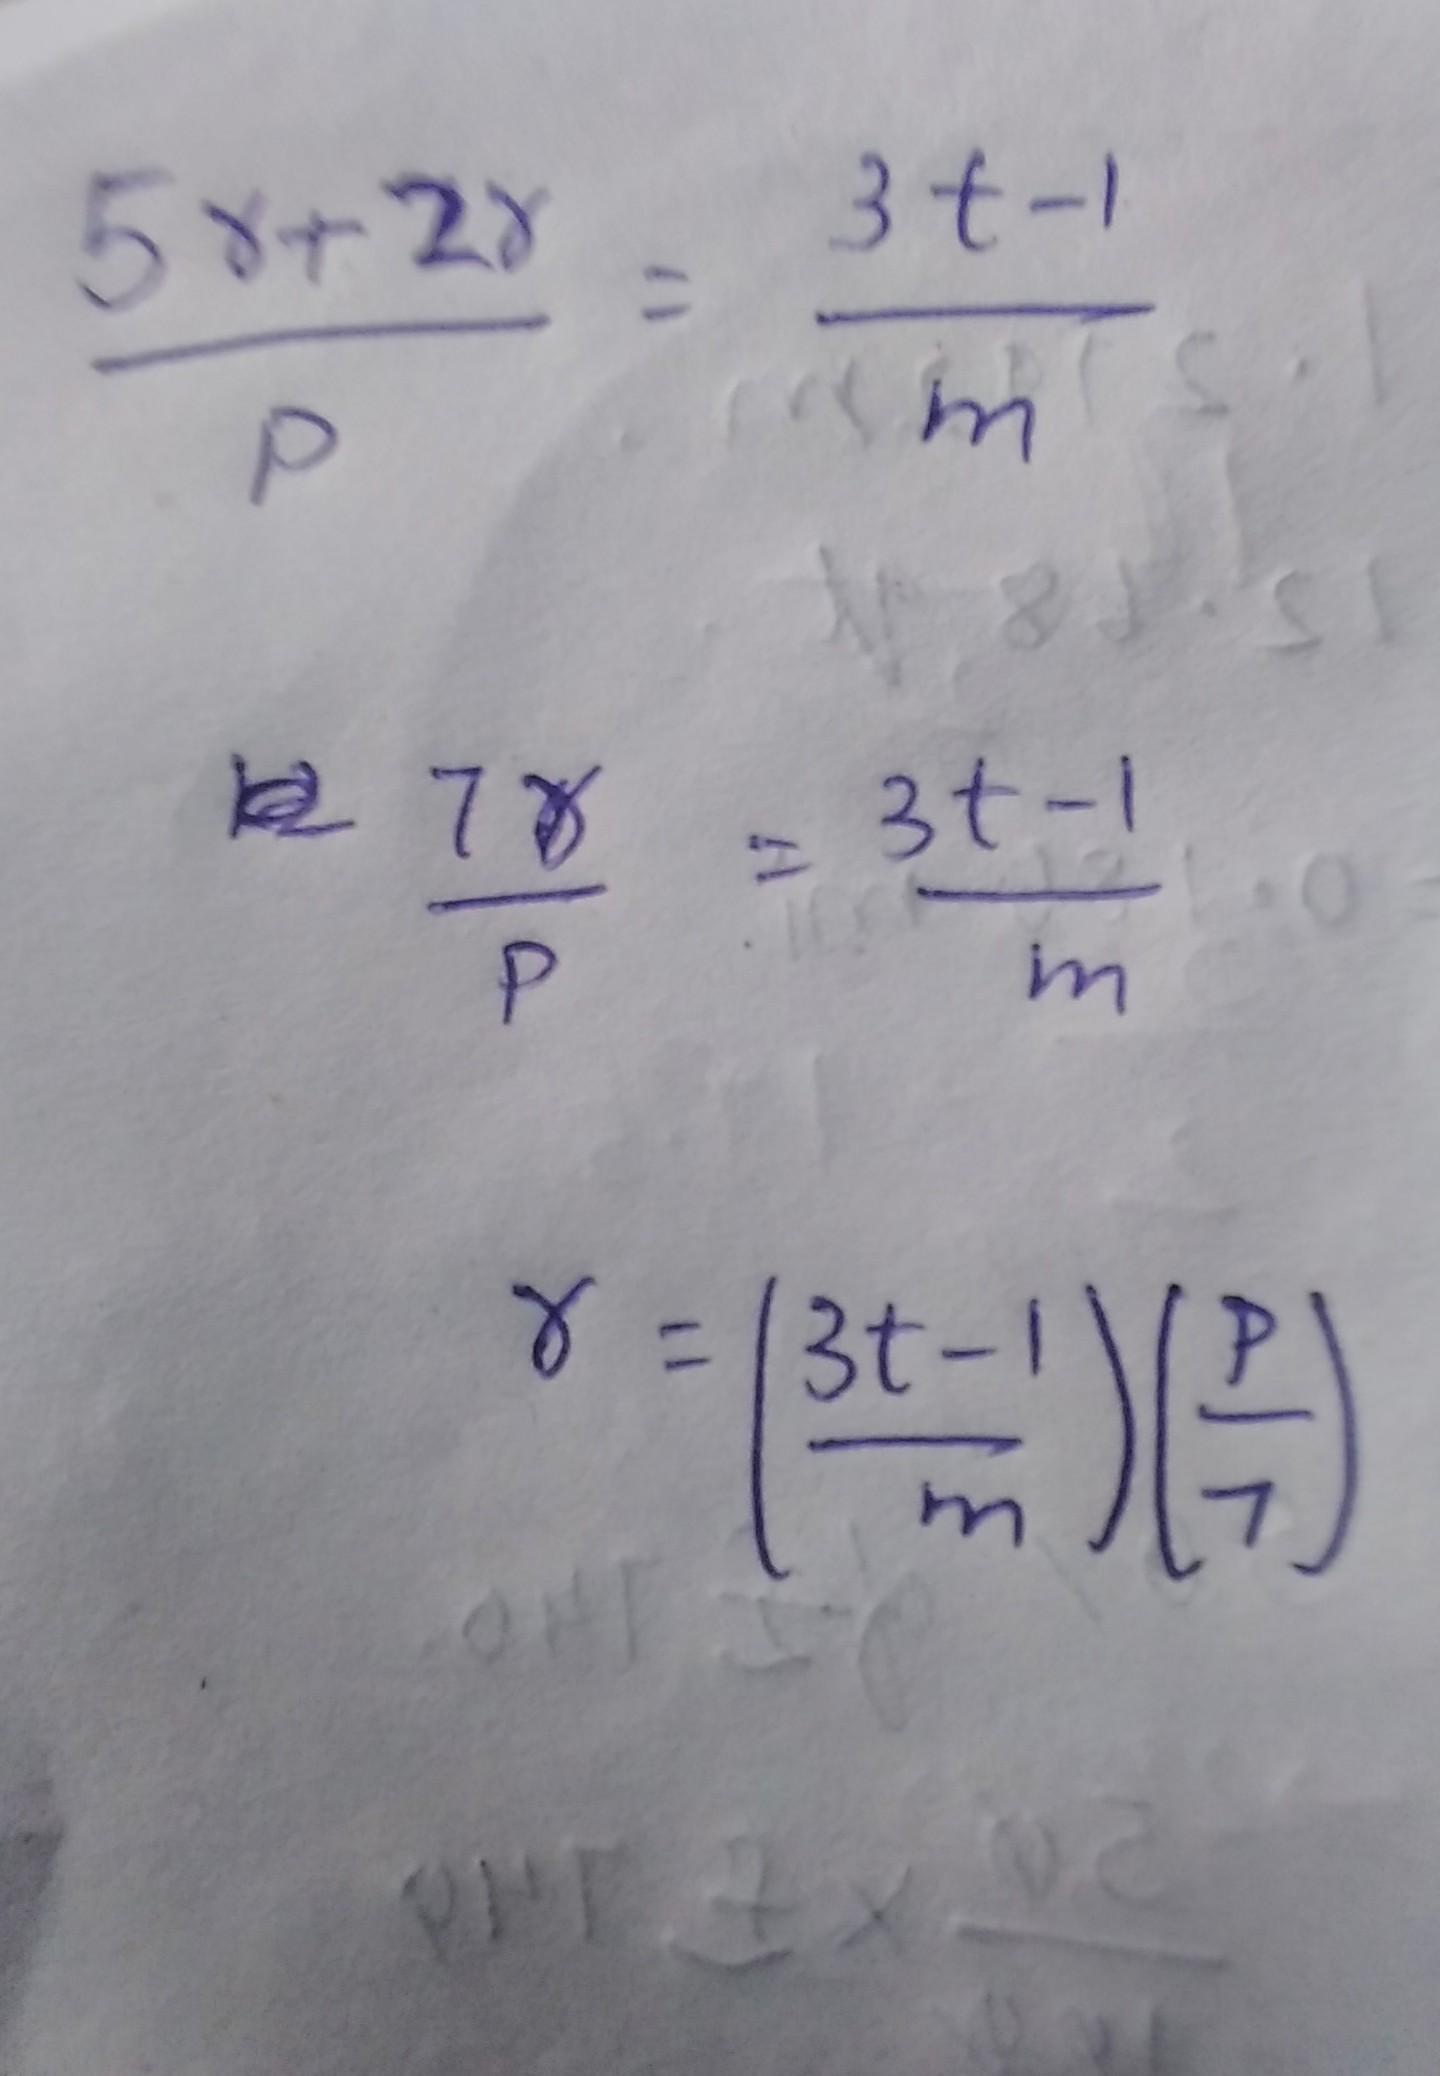 5r+2r/P = 3t-1/m
7r/P = 3t-1/m
r = (3t-1/m)(P/7)